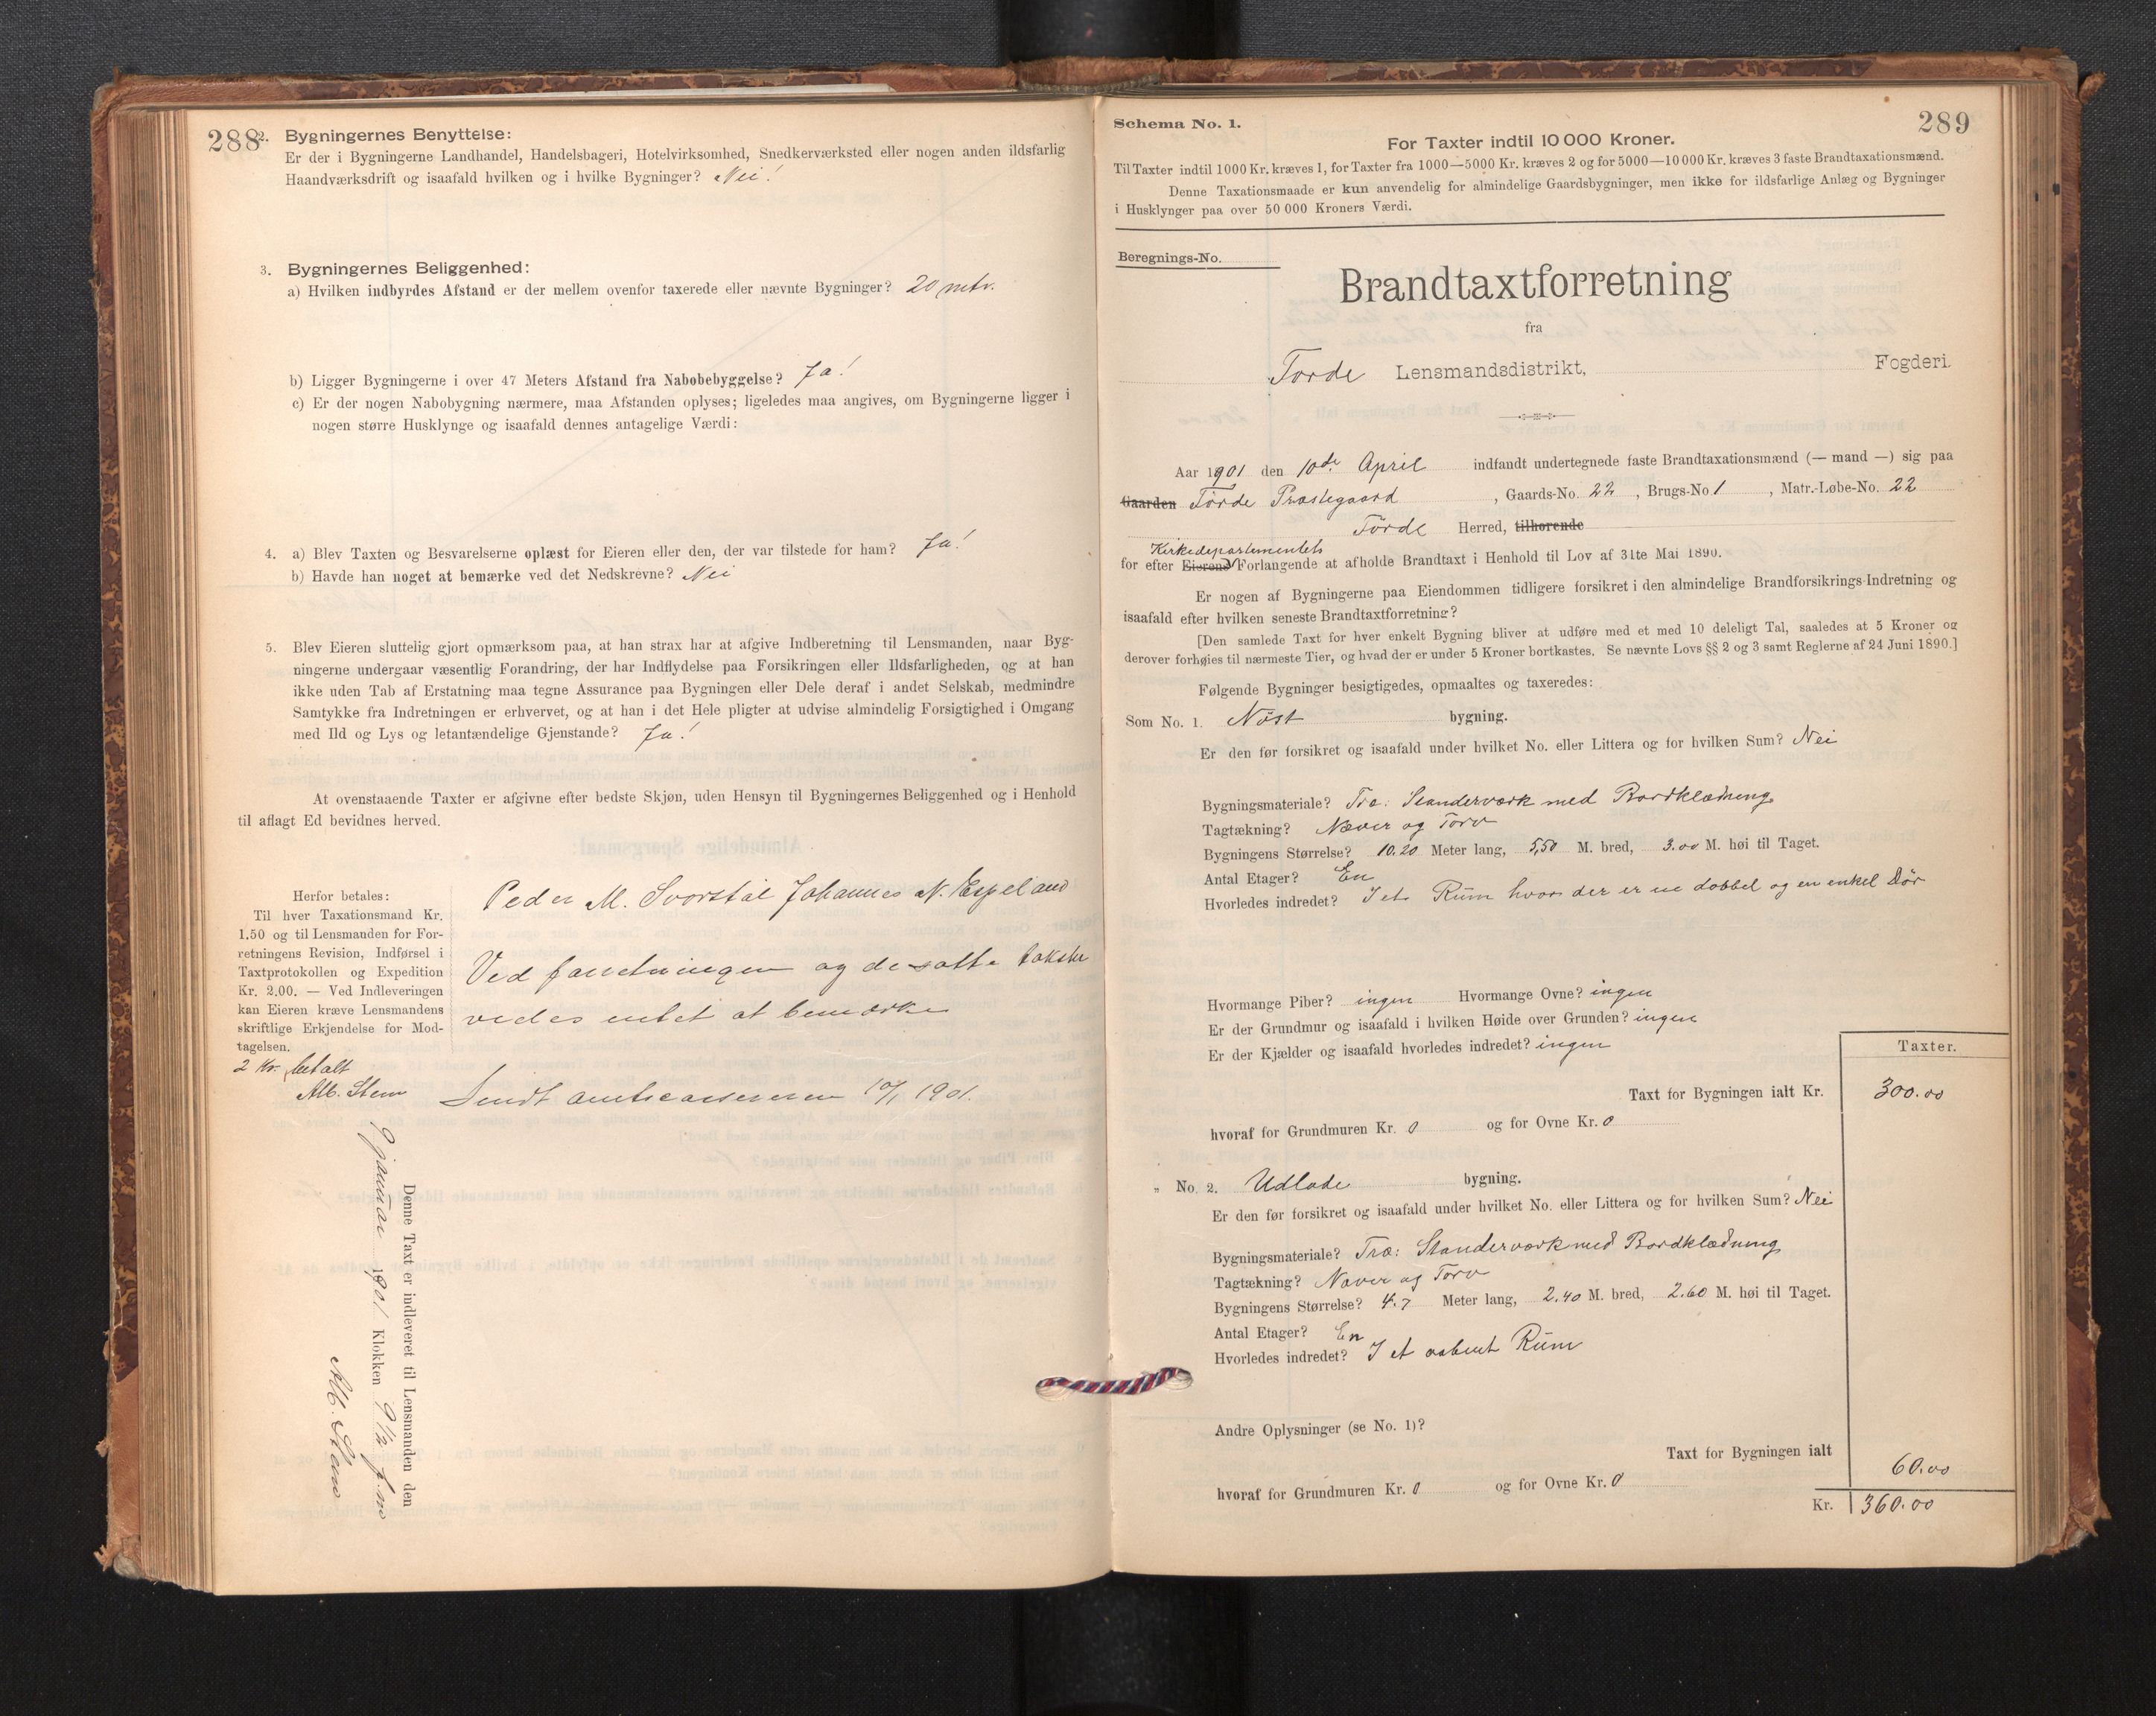 288
2. Bygningernes Benyttelse:
Er der i Bygningerne Landhandel, Handelsbageri, Hotelvirksomhed, Snedkerværksted eller nogen anden ildsfarlig
Haandværksdrift og isaafald hvilken og i hvilke Bygninger? Nei!
3. Bygningernes Beliggenhed:
a) Hvilken indbyrdes Afstand er der mellem ovenfor taxerede eller nævnte Bygninger? 20 mtr.
b) Ligger Bygningerne i over 47 Meters Afstand fra Nabobebyggelse? Ja!
c) Er der nogen Nabobygning nærmere, maa Afstanden oplyses; ligeledes maa angives, om Bygningerne ligger i
nogen større Husklynge og isaafald dennes antagelige Værdi:
4. a) Blev Taxten og Besvarelserne oplæst for Eieren eller den, der var tilstede for ham? Ja!
b) Havde han noget at bemærke ved det Nedskrevne? Nei
5. Blev Eieren sluttelig gjort opmærksom paa, at han strax har at afgive Indberetning til Lensmanden, naar Byg-
ningerne undergaar væsentlig Forandring, der har Indflydelse paa Forsikringen eller Ildsfarligheden, og at han
ikke uden Tab af Erstatning maa tegne Assurance paa Bygningen eller Dele deraf i andet Selskab, medmindre
Samtykke fra Indretningen er erhvervet, og at han i det Hele pligter at udvise almindelig Forsigtighed i Omgang
med Ild og Lys og letantændelige Gjenstande? Ja!
At ovenstaaende Taxter er afgivne efter bedste Skjøn, uden Hensyn til Bygningernes Beliggenhed og i Henhold
til aflagt Ed bevidnes herved.
Peder M. Svorstøl Johannes N. Espeland
Ved forretningen og de satte takster
vides intet at bemærke
Herfor betales:
Til hver Taxationsmand Kr.
1.50 og til Lensmanden for For-
retningens Revision, Indførsel i
Taxtprotokollen og Expedition
Kr. 2.00. — Ved Indleveringen
kan Eieren kræve Lensmandens
skriftlige Erkjendelse for Mod-
tagelsen.
2 Kr. betalt
Alb. Stenn
Sendt amtscassereren 10/1 1901.
Denne Taxt er indleveret til Lensmanden den
9 januar 1901 Klokken 9 1/2 f.m
Alb. Stenn
289
Schema No. 1.
For Taxter indtil 10 000 Kroner.
Til Taxter indtil 1000 Kr. kræves 1, for Taxter fra 1000—5000 Kr. kræves 2 og for 5000—10 000 Kr. kræves 3 faste Brandtaxationsmænd.
Denne Taxationsmaade er kun anvendelig for almindelige Gaardsbygninger, men ikke for ildsfarlige Anlæg og Bygninger
i Husklynger paa over 50 000 Kroners Værdi.
Beregnings-No.
Brandtaxtforretning
fra
Førde Lensmandsdistrikt, Fogderi.
Aar 1901 den 10de April indfandt undertegnede faste Brandtaxationsmænd (— mand —) sig paa
Gaarden Førde Præstegaard, Gaards-No. 22, Brugs-No 1, Matr.-Løbe-No. 22
Førde Herred, tilhørende
Kirkedepartementets
for efter Eierens Forlangende at afholde Brandtaxt i Henhold til Lov af 31te Mai 1890.
Er nogen af Bygningerne paa Eiendommen tidligere forsikret i den almindelige Brandforsikrings-Indretning og
isaafald efter hvilken seneste Brandtaxtforretning?
[Den samlede Taxt for hver enkelt Bygning bliver at udføre med et med 10 deleligt Tal, saaledes at 5 Kroner og
derover forhøies til nærmeste Tier, og hvad der er under 5 Kroner bortkastes. Se nævnte Lovs §§ 2 og 3 samt Reglerne af 24 Juni 1890.]
Følgende Bygninger besigtigedes, opmaaltes og taxeredes:
Som No. 1. Nöst bygning.
Er den før forsikret og isaafald under hvilket No. eller Littera og for hvilken Sum? Nei
Bygningsmateriale? Træ: Standerværk med Bordklædning
Tagtækning? Næver og Torv
Bygningens Størrelse? 10.20 Meter lang, 5,50 M. bred, 3.00 M. høi til Taget.
Antal Etager? En
Hvorledes indredet? I et Rüm hvor der er en dobbel og en enkel Dör
Hvormange Piber? ingen Hvormange Ovne? ingen
Er der Grundmur og isaafald i hvilken Høide over Grunden? ingen
Er der Kjælder og isaafald hvorledes indredet? ingen
Taxter.
Taxt for Bygningen ialt Kr. 300.00
hvoraf for Grundmuren Kr. 0 og for Ovne Kr. 0
„ No. 2. Udlade bygning.
Er den før forsikret og isaafald under hvilket No. eller Littera og for hvilken Sum? Nei
Bygningsmateriale? Træ: Standerværk med Bordklædning
Tagtækning? Næver og Torv
Bygningens Størrelse? 4.7 Meter lang, 2.40 M. bred, 2.60 M. høi til Taget.
Antal Etager? En
Hvorledes indredet? I et aabent Rüm
Andre Oplysninger (se No. 1)?
Taxt for Bygningen ialt 60.00
hvoraf for Grundmuren Kr. 0 og for Ovne Kr. 0
Kr. 360.00